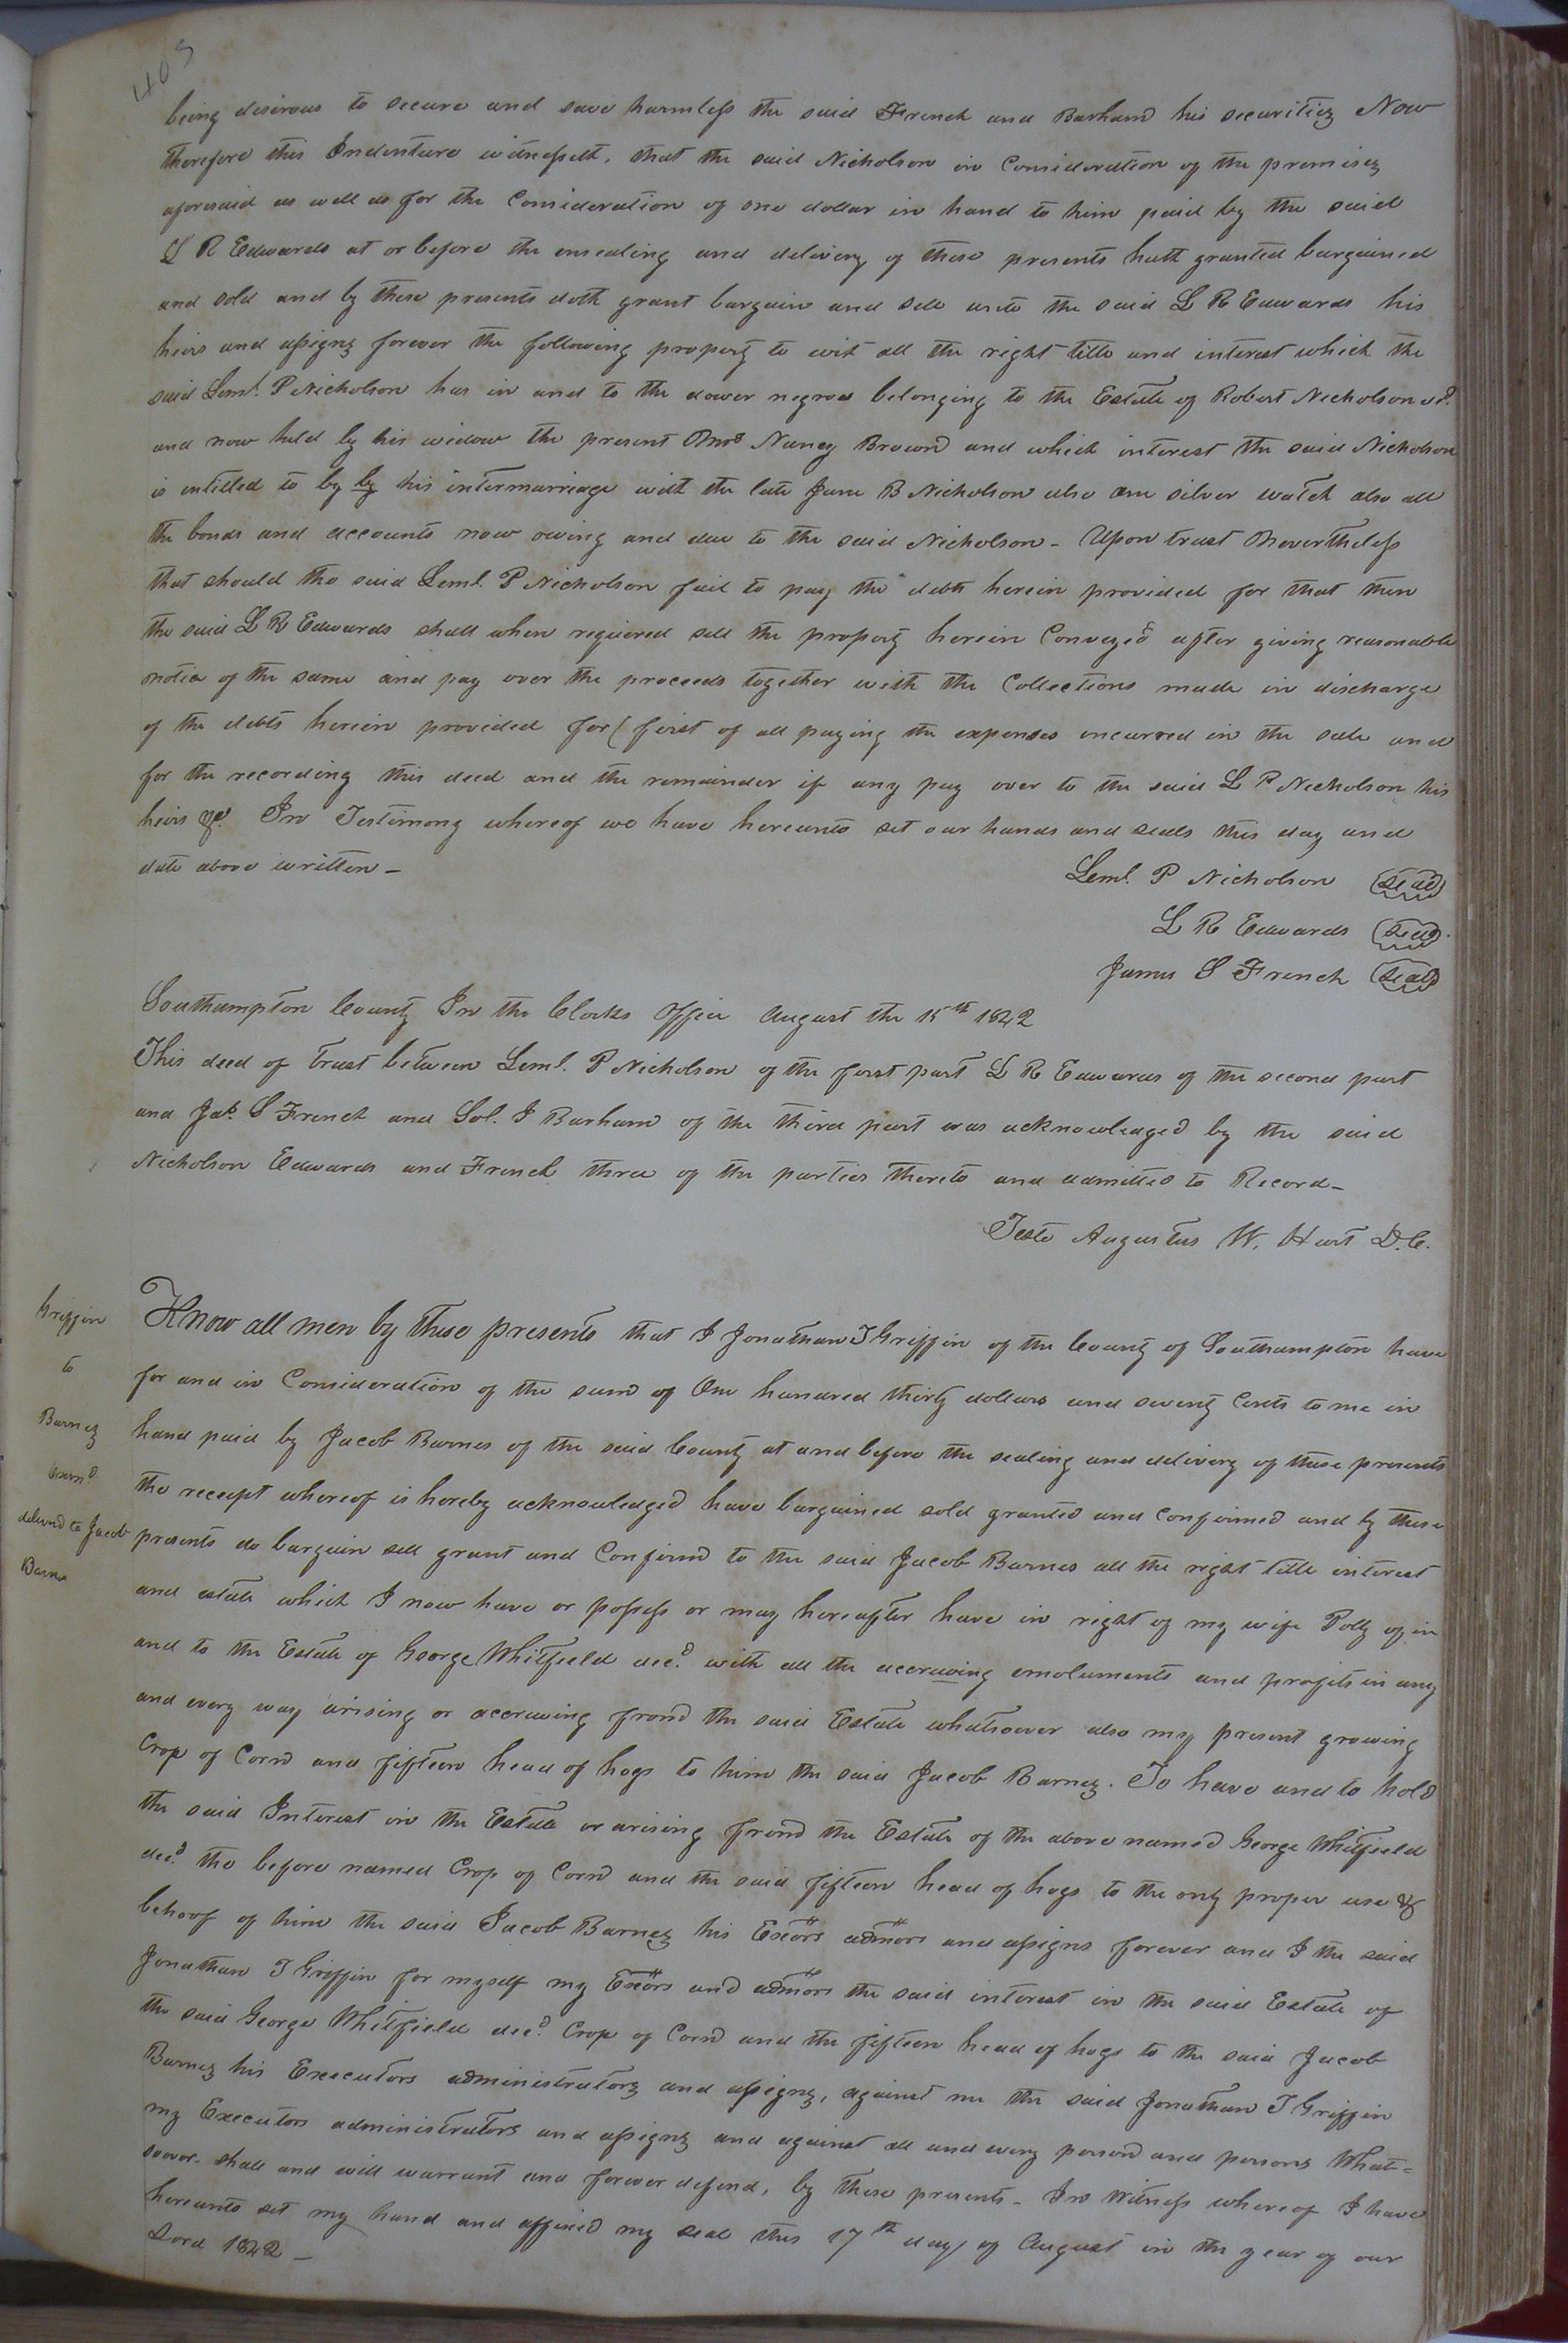 405
being desirous to secure and save harmless the said French and Barham his securities Now
therefore this Indenture witnesseth, that the said Nicholson in Consideration of the premises
aforesaid as well as for the Consideration of one dollar in hand to him paid by the said
L R Edwards at or before the ensealing and delivery of these presents hath granted bargained
and sold and by these presents doth grant bargain and sell unto the said L R Edwards his
heirs and assigns forever the following property to wit all the right title and interest which the
said Leml. P Nicholson has in and to the dower negroes belonging to the Estate of Robert Nicholson decd.
and now held by his widow the present Mrs Nancy Brown and which interest the said Nicholson
is intitled to by by his intermarriage with the late Jane B Nicholson also one silver watch also all
the bonds and accounts now owing and due to the said Nicholson - Upon trust Nevertheless
that should the said Leml. P Nicholson fail to pay the debts herein provided for that then
the said L R Edwards shall when required sell the property herein Conveyed after giving reasonable
notice of the same and pay over the proceeds together with the Collections made in discharge
of the debts herein provided for (first of all paying the expenses incurred in the sale and
for the recording this deed and the remainder if any pay over to the said L P Nicholson his
heirs &c. In Testimony whereof we have hereunto set our hands and seals this day and
date above written -
Leml. P Nicholson (Seal)
L R Edwards (Seal)
James S French (Seal)
Southampton County In the Clerks Office August the 15th 1842
This deed of trust between Leml. P Nicholson of the first part L R Edwards of the second part
and Jas. S French and Sol. J Barham of the third part was acknowledged by the said
Nicholson Edwards and French three of the parties thereto and admitted to Record -
Teste Augustus W. Hart D.C.
Griffin
to
Barnes
Examd
deliverd to Jacob
Barnes
Know all men by these presents that I Jonathan T Griffin of the County of Southampton have
for and in Consideration of the sum of One hundred thirty dollars and seventy Cents to me in
hand paid by Jacob Barnes of the said County at and before the sealing and delivery of these presents
the receipt whereof is hereby acknowledged have bargained sold granted and Confirmed and by these
presents do bargain sell grant and Confirm to the said Jacob Barnes all the right title interest
and estate which I now have or possess or may hereafter have in right of my wife Polly of in
and to the Estate of George Whitfield decd. with all the accruing emoluments and profits in any
and every way arising or accruwing from the said Estate whatsoever also my present growing
Crop of Corn and fifteen head of hogs to him the said Jacob Barnes. To have and to hold
the said Interest in the Estate or arising from the Estate of the above named George Whitfield
decd. the before named Crop of Corn and the said fifteen head of hogs to the only proper use &
behoof of him the said Jacob Barnes his Exors admors and assigns forever and I the said
Jonathan T Griffin for myself my Exors and admors the said interest in the said Estate of
the said George Whitfield decd. Crop of Corn and the fifteen head of hogs to the said Jacob
Barnes his Executors administrators and assigns, against me the said Jonathan T Griffin
my Executors administrators and assigns and against all and every person and persons What=
soever shall and will warrant and forever defend, by these presents - In Witness whereof I have
hereunto set my hand and affixed my seal this 17th day of August in the year of our
Lord 1842 -